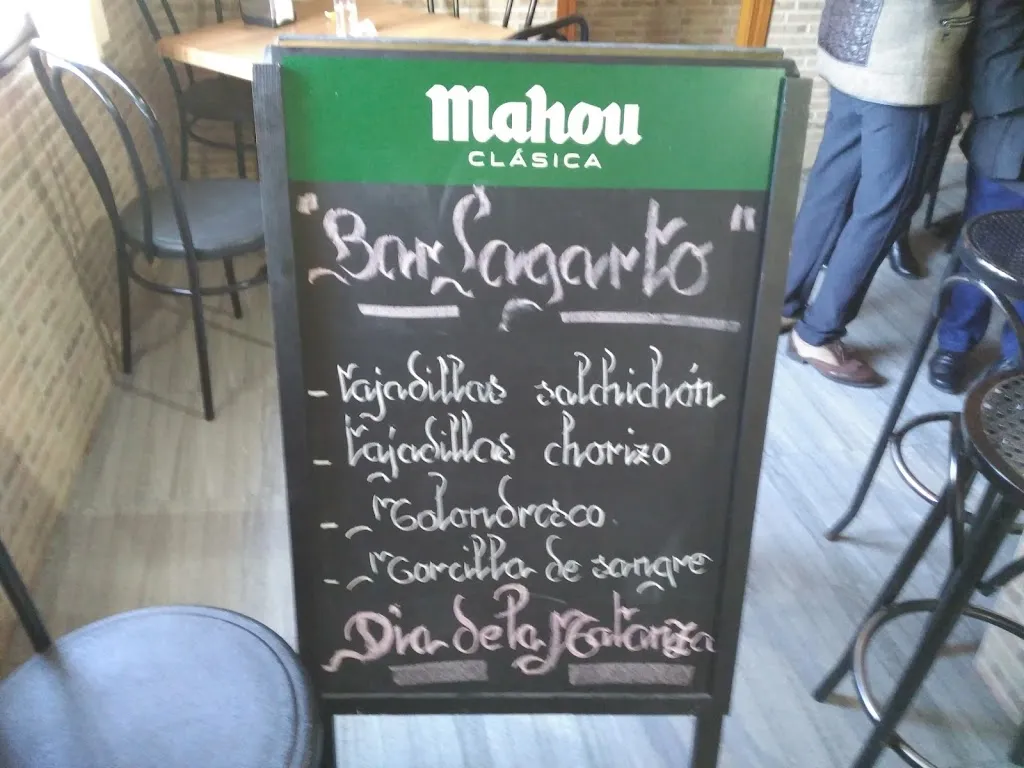 Mahou
CLÁSICA
"Bar Lagarto"
- Tajadillas salchichón
- Tajadillas chorizo
- Molondrosco
- Morcilla de sangre
Dia de la Matanza